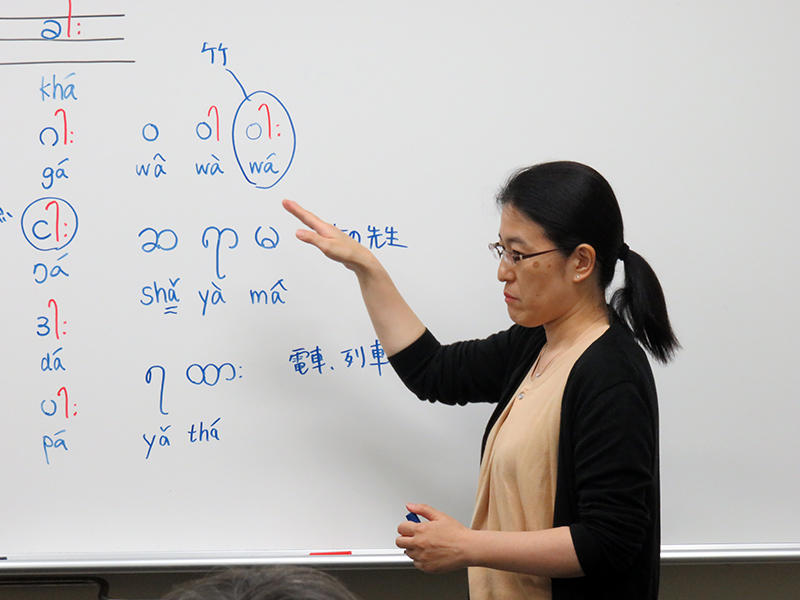 ခါး
khá
竹
ဂါး ဝ ဝါ ဝါး
gá wâ wà wá
ငါး ဆ ရာ မ の先生
ŋá shǎ yà mâ
ဒါး
dá ရ ထား 電車、列車
ပါး
pá yǎ thá